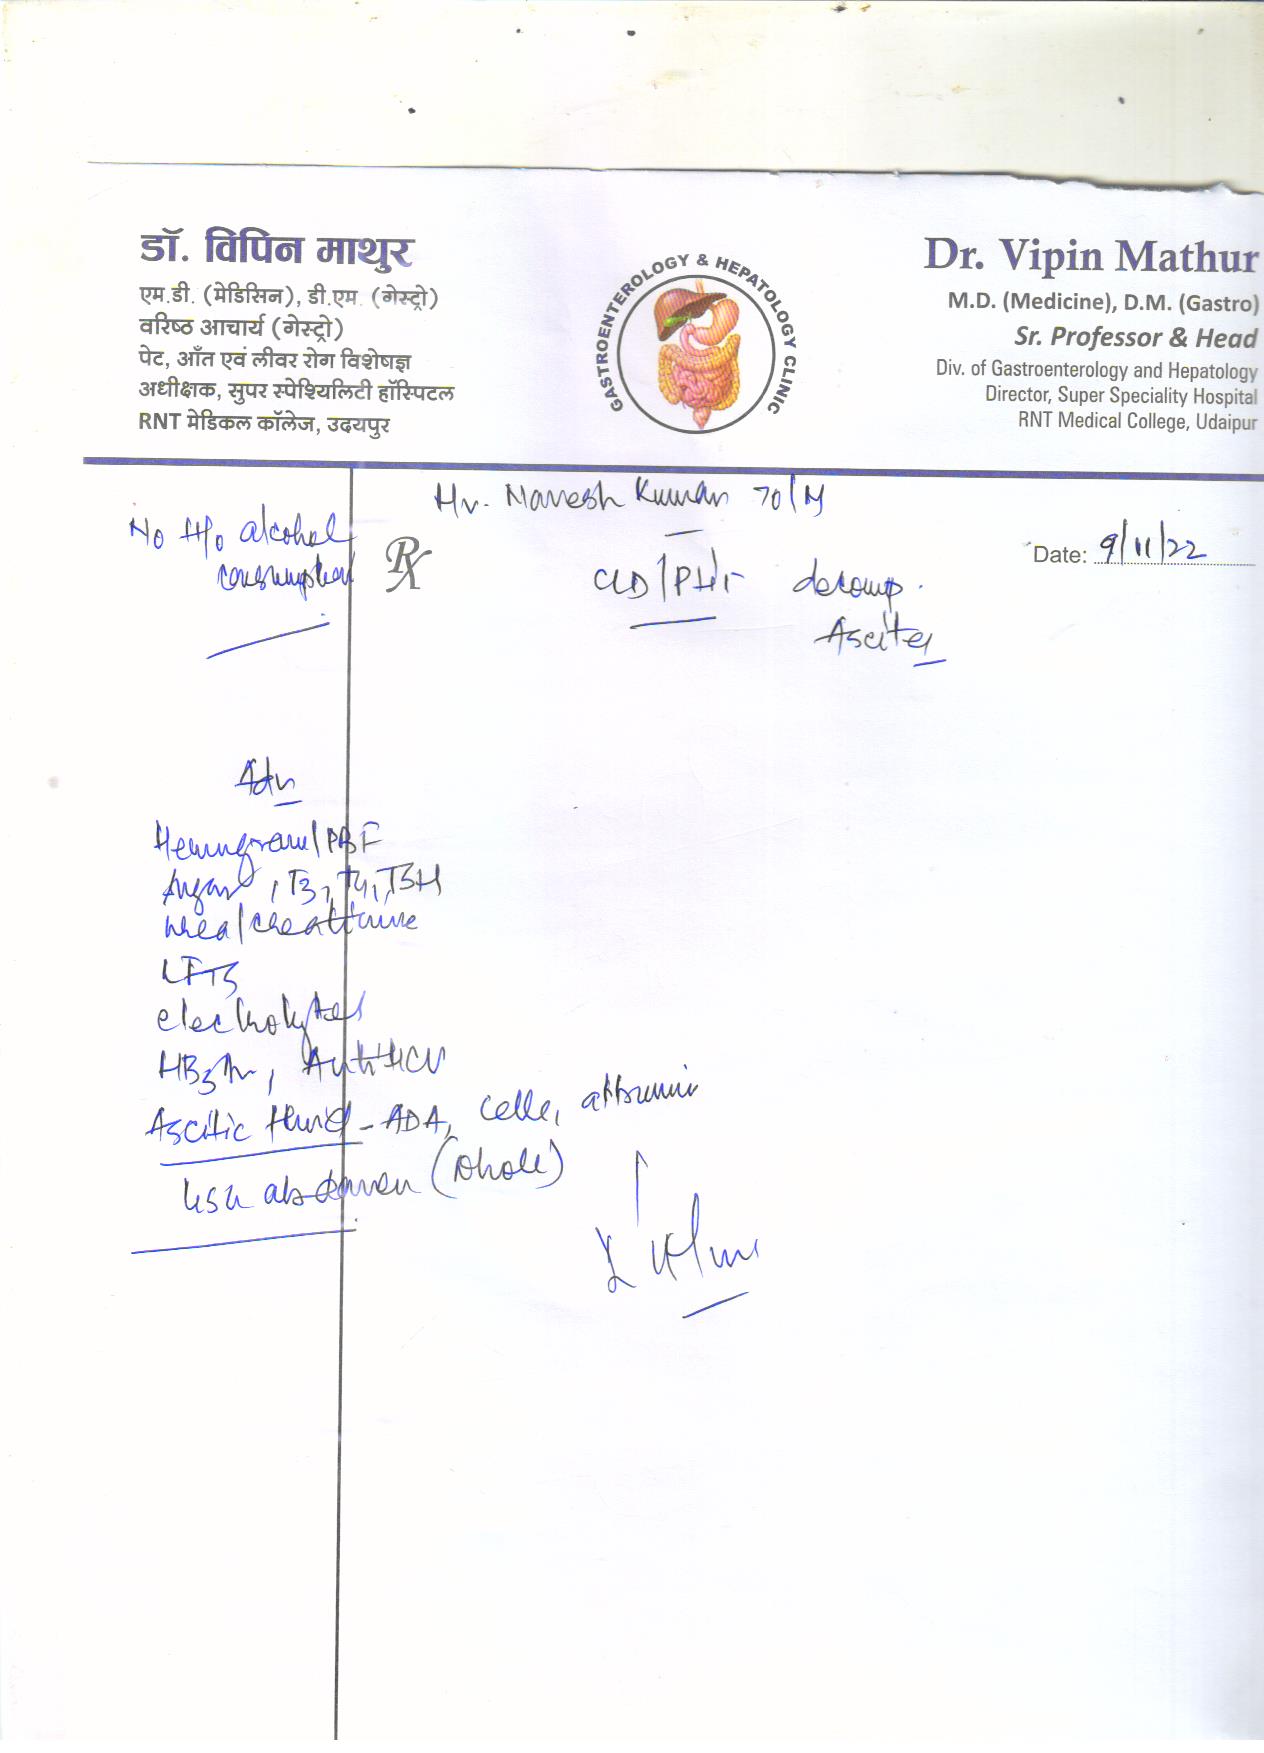 डॉ. विपिन माथुर
एम.डी. (मेडिसिन), डी.एम. (गेस्ट्रो)
वरिष्ठ आचार्य (गेस्ट्रो)
पेट, आँत एवं लीवर रोग विशेषज्ञ
अधीक्षक, सुपर स्पेश्यिलिटी हॉस्पिटल
RNT मेडिकल कॉलेज, उदयपुर
GASTROENTEROLOGY & HEPATOLOGY CLINIC
Dr. Vipin Mathur
M.D. (Medicine), D.M. (Gastro)
Sr. Professor & Head
Div. of Gastroenterology and Hepatology
Director, Super Speciality Hospital
RNT Medical College, Udaipur
Kumar 70/M
No H/o alcohol
consumption
Rx
Date: 9/11/22
CLD/PHT decomp.
Ascites
Adv
Hemogram/PBF
Sugar, T3, T4, TSH
Urea/creatinine
LFTs
electrolytes
Anti HCV
Ascitic fluid - ADA, cells, albumin
USG abdomen (whole)